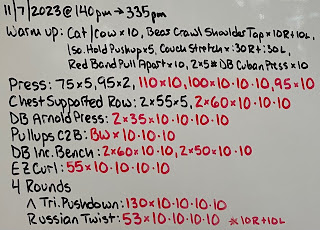 11/7/2023 @ 140pm → 335pm
Warm up: Cat/cow x 10, Bear Crawl Shoulder Tap x 10R+10L,
Iso. Hold Pushup x 5, Couch Stretch x :30R+:30L,
Red Band Pull Apart x 10, 2x5# DB Cuban Press x 10
Press: 75x5, 95x2, 110x10, 100x10·10·10, 95x10
Chest Supported Row: 2x55x5, 2x60x10·10·10
DB Arnold Press: 2x35x10·10·10·10
Pullups C2B: BW x 10·10·10
DB Inc. Bench: 2x60x10·10, 2x50x10·10
EZ Curl: 55x10·10·10·10
4 Rounds
^ Tri. Pushdown: 130x10·10·10·10
Russian Twist: 53x10·10·10·10 *x10R+10L